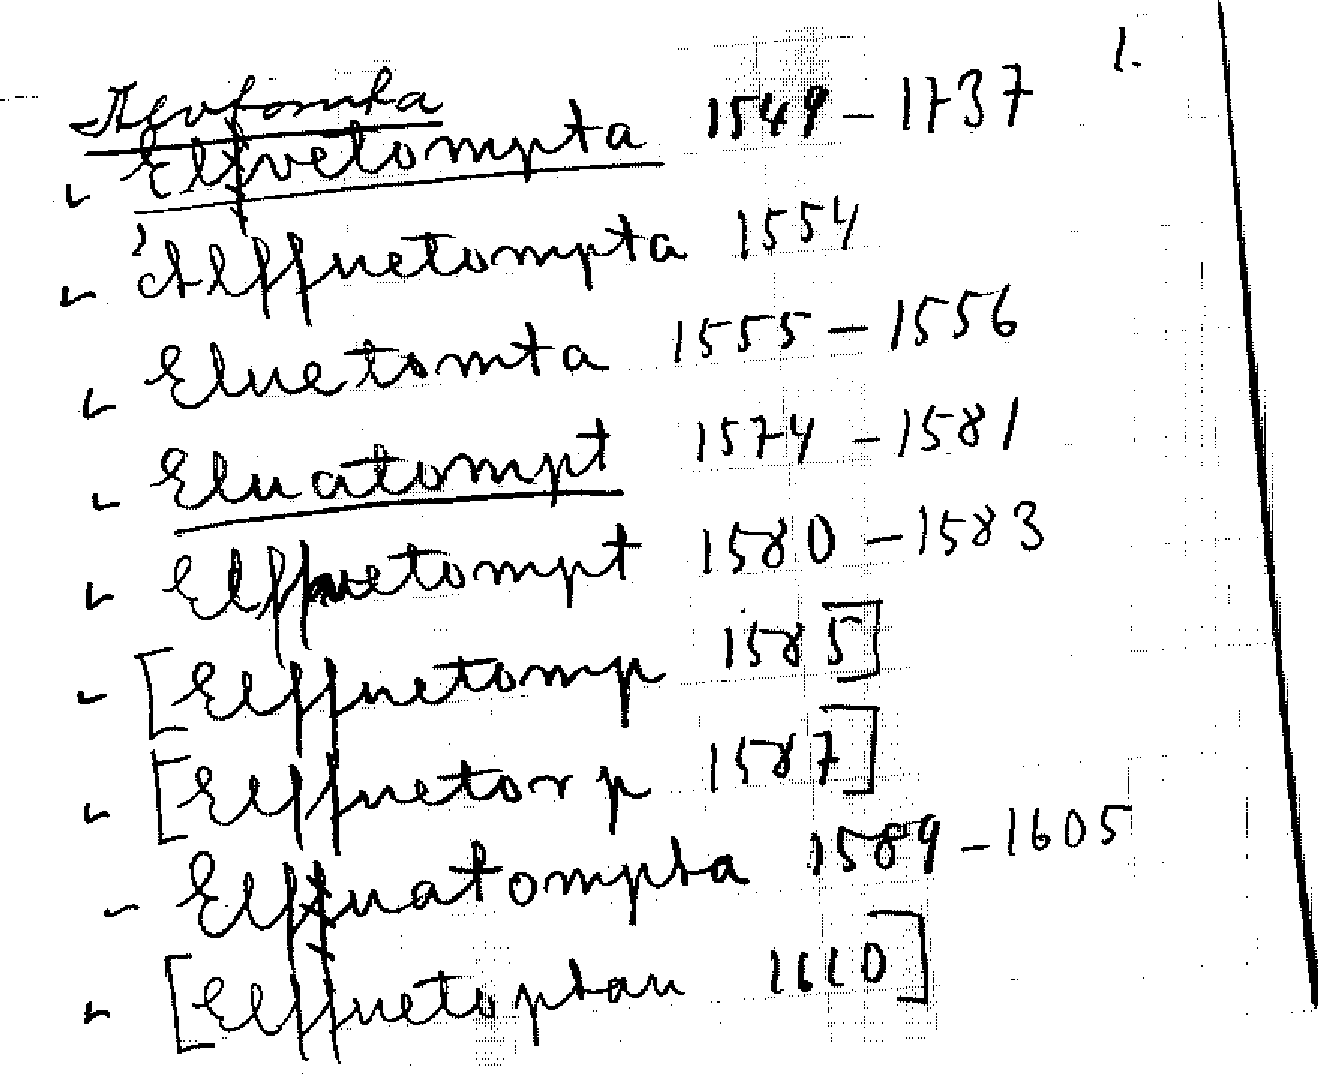 1.
Elfvetompta 1549 – 1737
Alffnetompta 1554
Eluetomta 1555 – 1556
Eluatompt 1574 – 1581
Elffuetompt 1580 – 1583
[Elffuetomp 1585]
[Elffuetorp 1587]
Elffuatompta 1589 – 1605
[Elffuetoptan 1610]